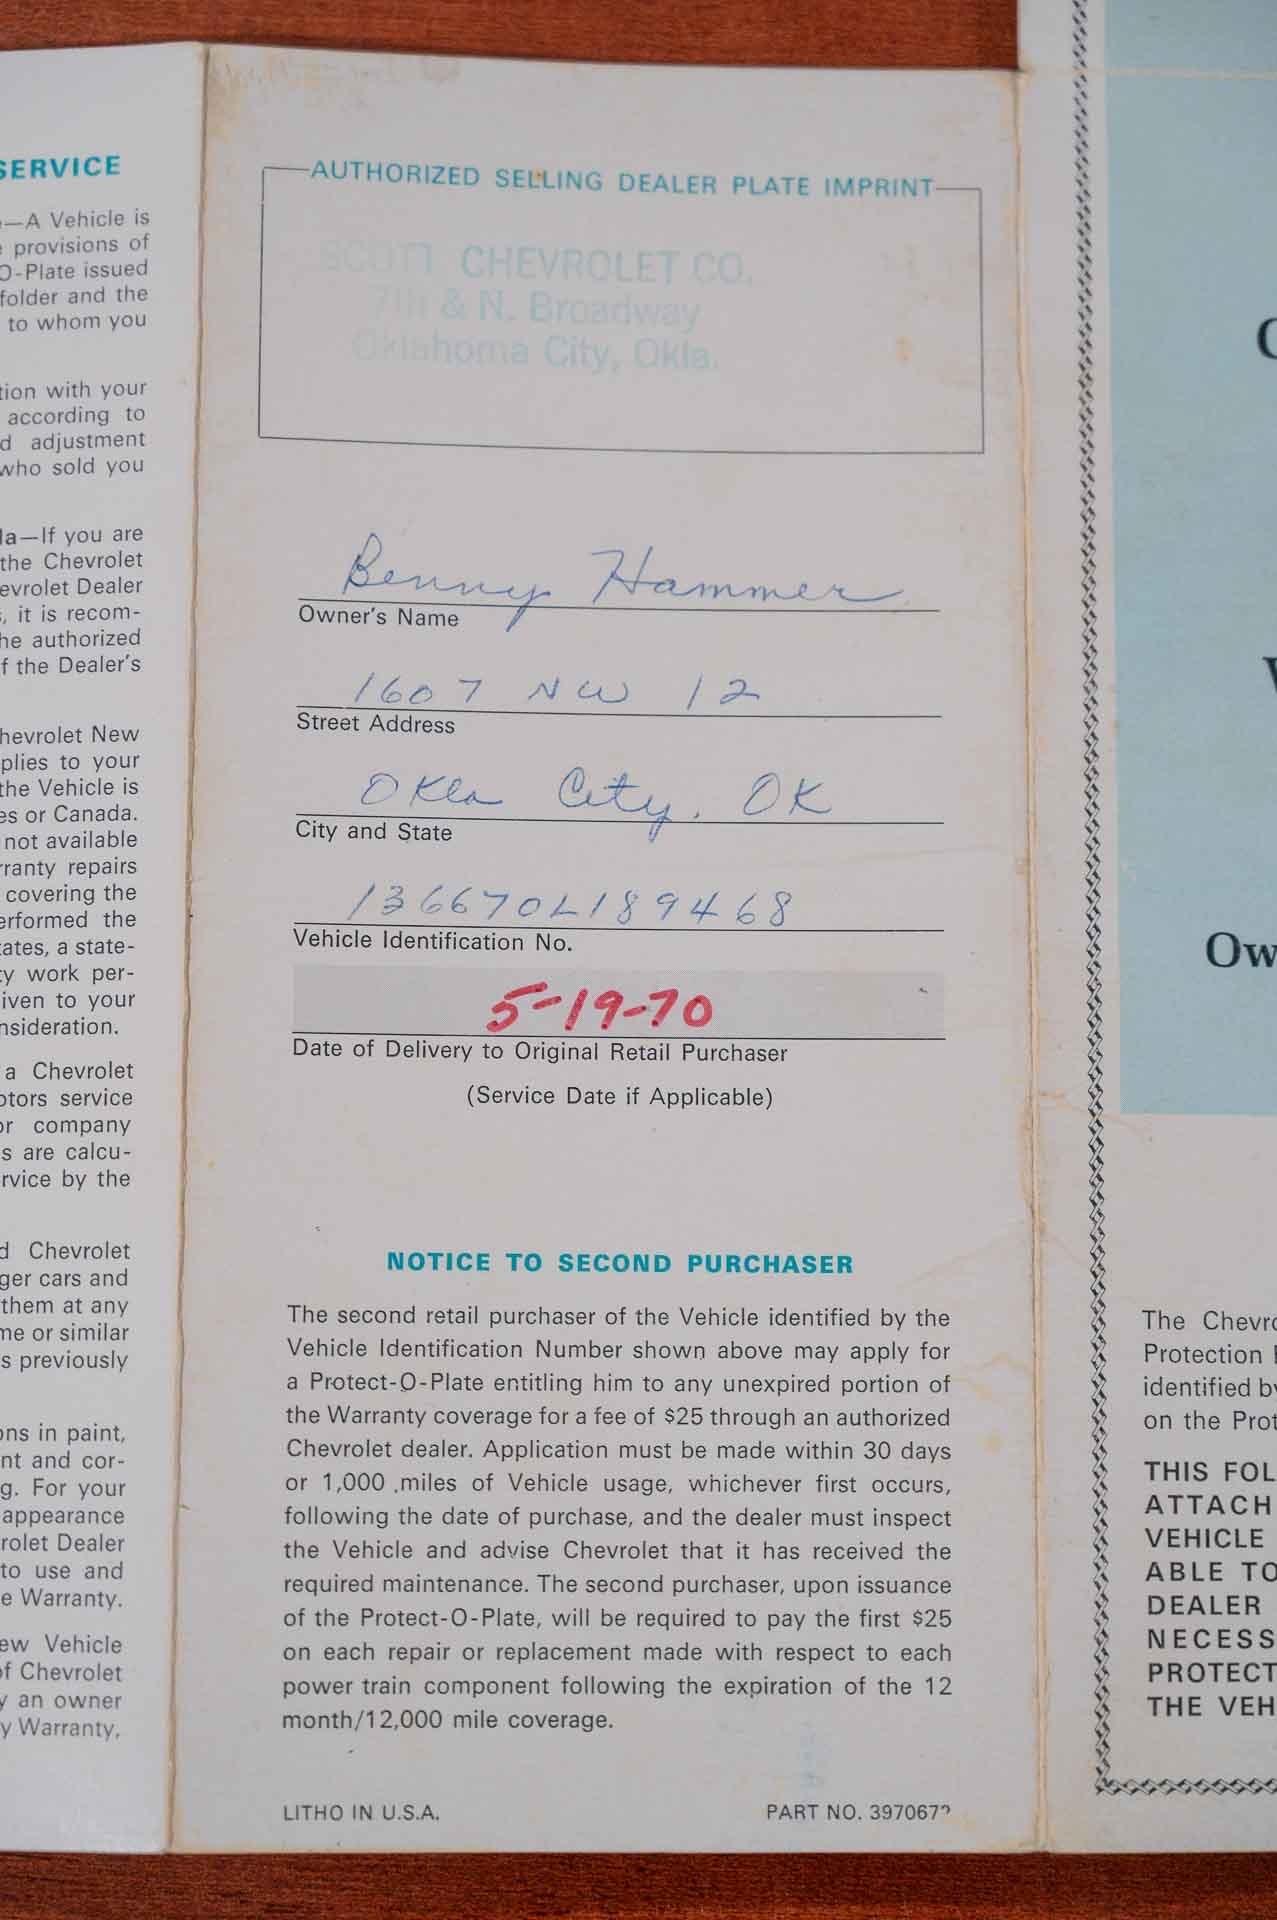 SERVICE
—A Vehicle is
provisions of
O-Plate issued
folder and the
to whom you
tion with your
according to
d adjustment
who sold you
la—If you are
the Chevrolet
evrolet Dealer
s, it is recom-
he authorized
f the Dealer's
hevrolet New
plies to your
the Vehicle is
es or Canada.
not available
rranty repairs
covering the
erformed the
tates, a state-
ty work per-
iven to your
nsideration.
a Chevrolet
otors service
or company
s are calcu-
rvice by the
d Chevrolet
ger cars and
them at any
me or similar
s previously
ons in paint,
nt and cor-
g. For your
appearance
rolet Dealer
to use and
e Warranty.
ew Vehicle
of Chevrolet
y an owner
y Warranty,
AUTHORIZED SELLING DEALER PLATE IMPRINT
SCOTT CHEVROLET CO.
7th & N. Broadway
Oklahoma City, Okla.
Benny Hammer
Owner's Name
1607 NW 12
Street Address
Okla City, OK
City and State
136670L189468
Vehicle Identification No.
5-19-70
Date of Delivery to Original Retail Purchaser
(Service Date if Applicable)
NOTICE TO SECOND PURCHASER
The second retail purchaser of the Vehicle identified by the
Vehicle Identification Number shown above may apply for
a Protect-O-Plate entitling him to any unexpired portion of
the Warranty coverage for a fee of $25 through an authorized
Chevrolet dealer. Application must be made within 30 days
or 1,000 miles of Vehicle usage, whichever first occurs,
following the date of purchase, and the dealer must inspect
the Vehicle and advise Chevrolet that it has received the
required maintenance. The second purchaser, upon issuance
of the Protect-O-Plate, will be required to pay the first $25
on each repair or replacement made with respect to each
power train component following the expiration of the 12
month/12,000 mile coverage.
LITHO IN U.S.A.
PART NO.
Ow
The Chevro
Protection
identified by
on the Prot
THIS FOL
ATTACH
VEHICLE
ABLE TO
DEALER
NECESS
PROTECT
THE VEH